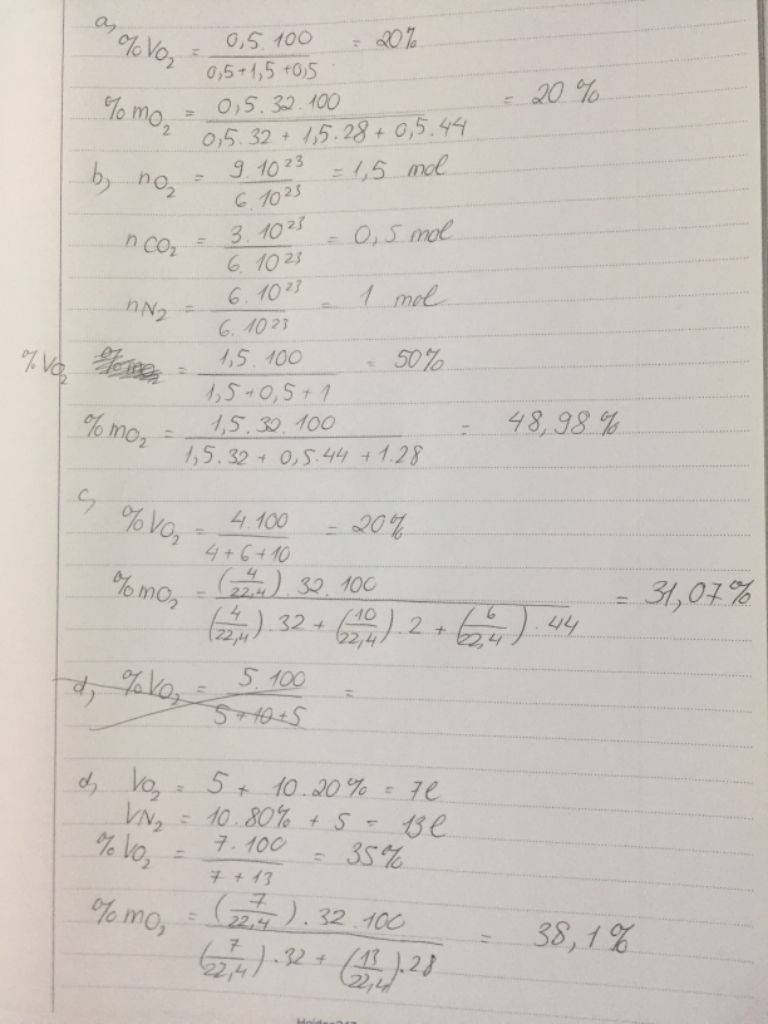 a,
%VO₂ = 0,5.100 / 0,5+1,5+0,5 = 20%
%mO₂ = 0,5.32.100 / 0,5.32 + 1,5.28 + 0,5.44 = 20 %
b, nO₂ = 9.10²³ / 6.10²³ = 1,5 mol
nCO₂ = 3.10²³ / 6.10²³ = 0,5 mol
nN₂ = 6.10²³ / 6.10²³ = 1 mol
%VO₂ = 1,5.100 / 1,5+0,5+1 = 50%
%mO₂ = 1,5.32.100 / 1,5.32 + 0,5.44 + 1.28 = 48,98 %
c,
%VO₂ = 4.100 / 4+6+10 = 20%
%mO₂ = (4/22,4).32.100 / (4/22,4).32 + (10/22,4).2 + (6/22,4).44 = 31,07%
d, %VO₂ = 5.100 / 5+10+5 =
d, VO₂ = 5 + 10.20% = 7l
VN₂ = 10.80% + 5 = 13l
%VO₂ = 7.100 / 7+13 = 35%
%mO₂ = (7/22,4).32.100 / (7/22,4).32 + (13/22,4).28 = 38,1%